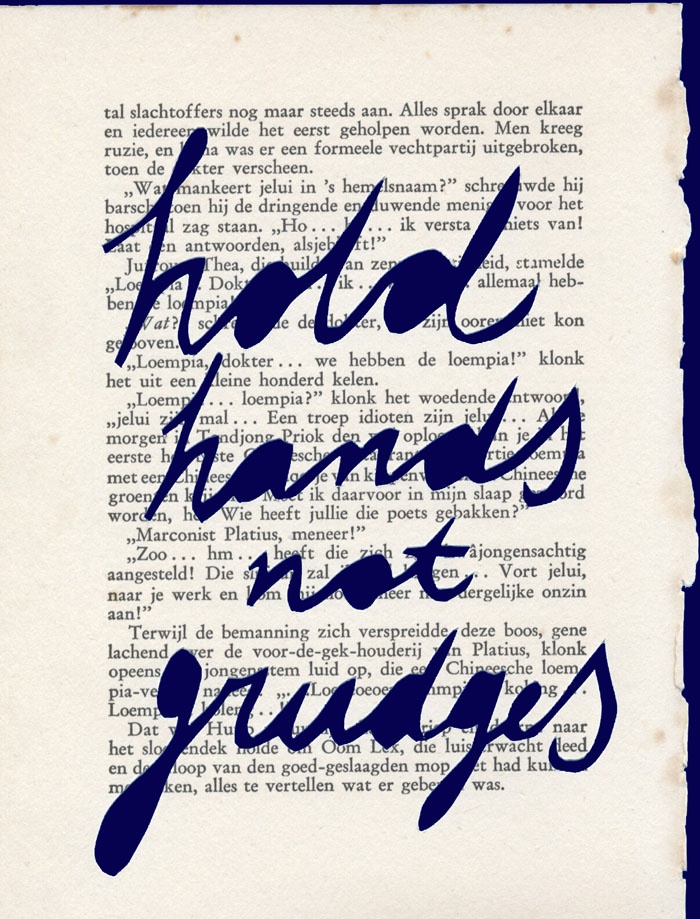 hold
hands
not
grudges
tal slachtoffers nog maar steeds aan. Alles sprak door elkaar
en iedereen wilde het eerst geholpen worden. Men kreeg
ruzie, en was er een formeele vechtpartij uitgebroken,
toen de dokter verscheen.
„Wat mankeert jelui in 's hemelsnaam?” schreeuwde hij
barsch toen hij de dringende en duwende menigte voor het
hospitaal zag staan. „Ho... ik versta niets van!
Laat antwoorden, alsjeblieft!”
Juffrouw Thea, stamelde
„Loempia Dokter ik... allemaal heb-
ben de loempia
Wat? de dokter, zijn ooren niet kon
gelooven.
„Loempia, dokter... we hebben de loempia!” klonk
het uit een kleine honderd kelen.
„Loempia... loempia?” klonk het woedende antwoord,
„jelui zijn mal... Een troep idioten zijn jelui... Als je
morgen in Tandjong Priok den kan je in het
eerste het beste Chineesche restaurant
met een Chinees je van Chineesche
groenten Moet ik daarvoor in mijn slaap gestoord
worden, hè? Wie heeft jullie die poets gebakken?”
„Marconist Platius, meneer!”
„Zoo... hm... heeft die zich
aangesteld! Die zal ik krijgen... Vort jelui,
naar je werk en kom meer met dergelijke onzin
aan!”
Terwijl de bemanning zich verspreidde, deze boos, gene
lachend over de voor-de-gek-houderij van Platius, klonk
opeens jongensstem luid op, die een Chineesche loem-
pia-
Loempia
Dat naar
het sloependek Oom Lex, die luis deed
en de loop van den goed-geslaagden mop, het had
alles te vertellen wat er gebeurd was.